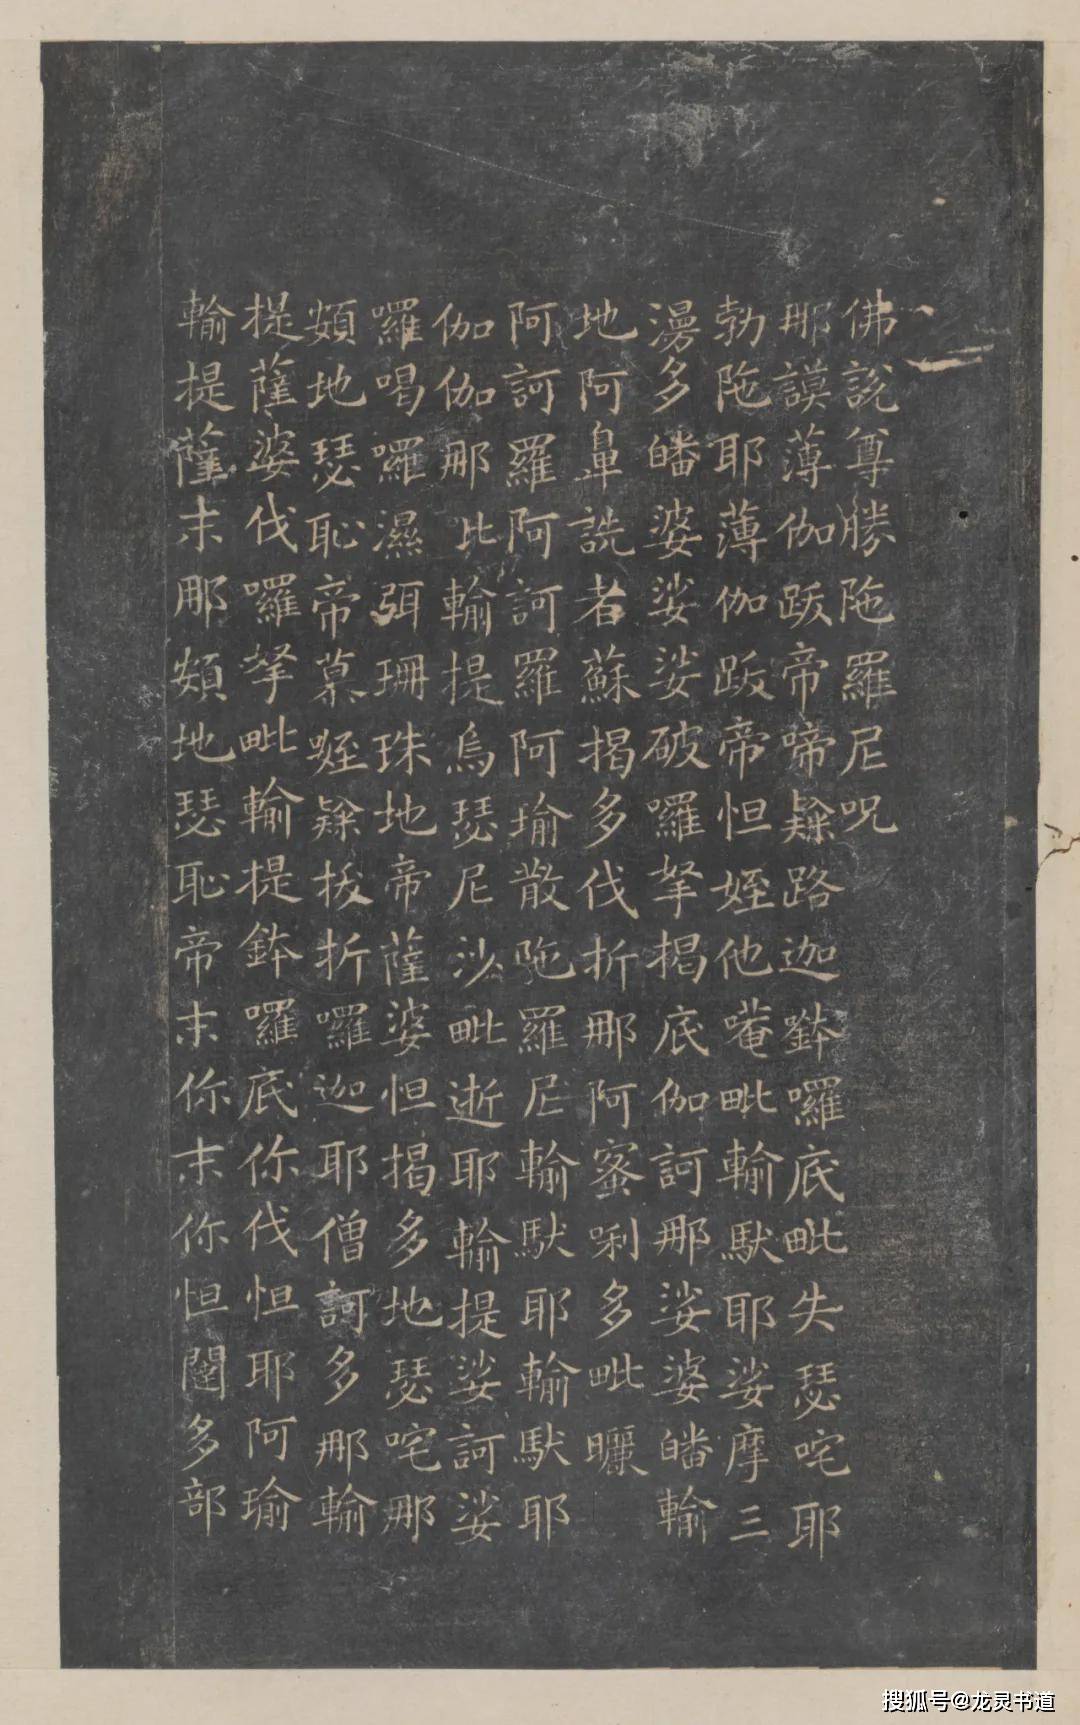 佛說尊勝陁羅尼呪
那謨薄伽跋帝啼隸路迦鉢囉底毗失瑟咤耶
勃陁耶薄伽跋帝怛姪他唵毗輸馱耶娑摩三
漫多皤婆娑娑破羅拏揭底伽訶那娑婆皤輸
地阿鼻詵者蘇揭多伐折那阿蜜唎多毗曬
阿訶羅阿訶羅阿瑜散陁羅尼輸馱耶輸馱耶
伽伽那比輸提烏瑟尼沙毗逝耶輸提娑訶娑
囉喝囉濕弭珊珠地帝薩婆怛揭多地瑟咤那
頞地瑟恥帝慕姪隸拔折囉迦耶僧訶多那輸
提薩婆伐囉拏毗輸提鉢囉底你伐怛耶阿瑜
輸提薩末那頞地瑟恥帝末你末你怛闥多部
搜狐号@龙灵书道